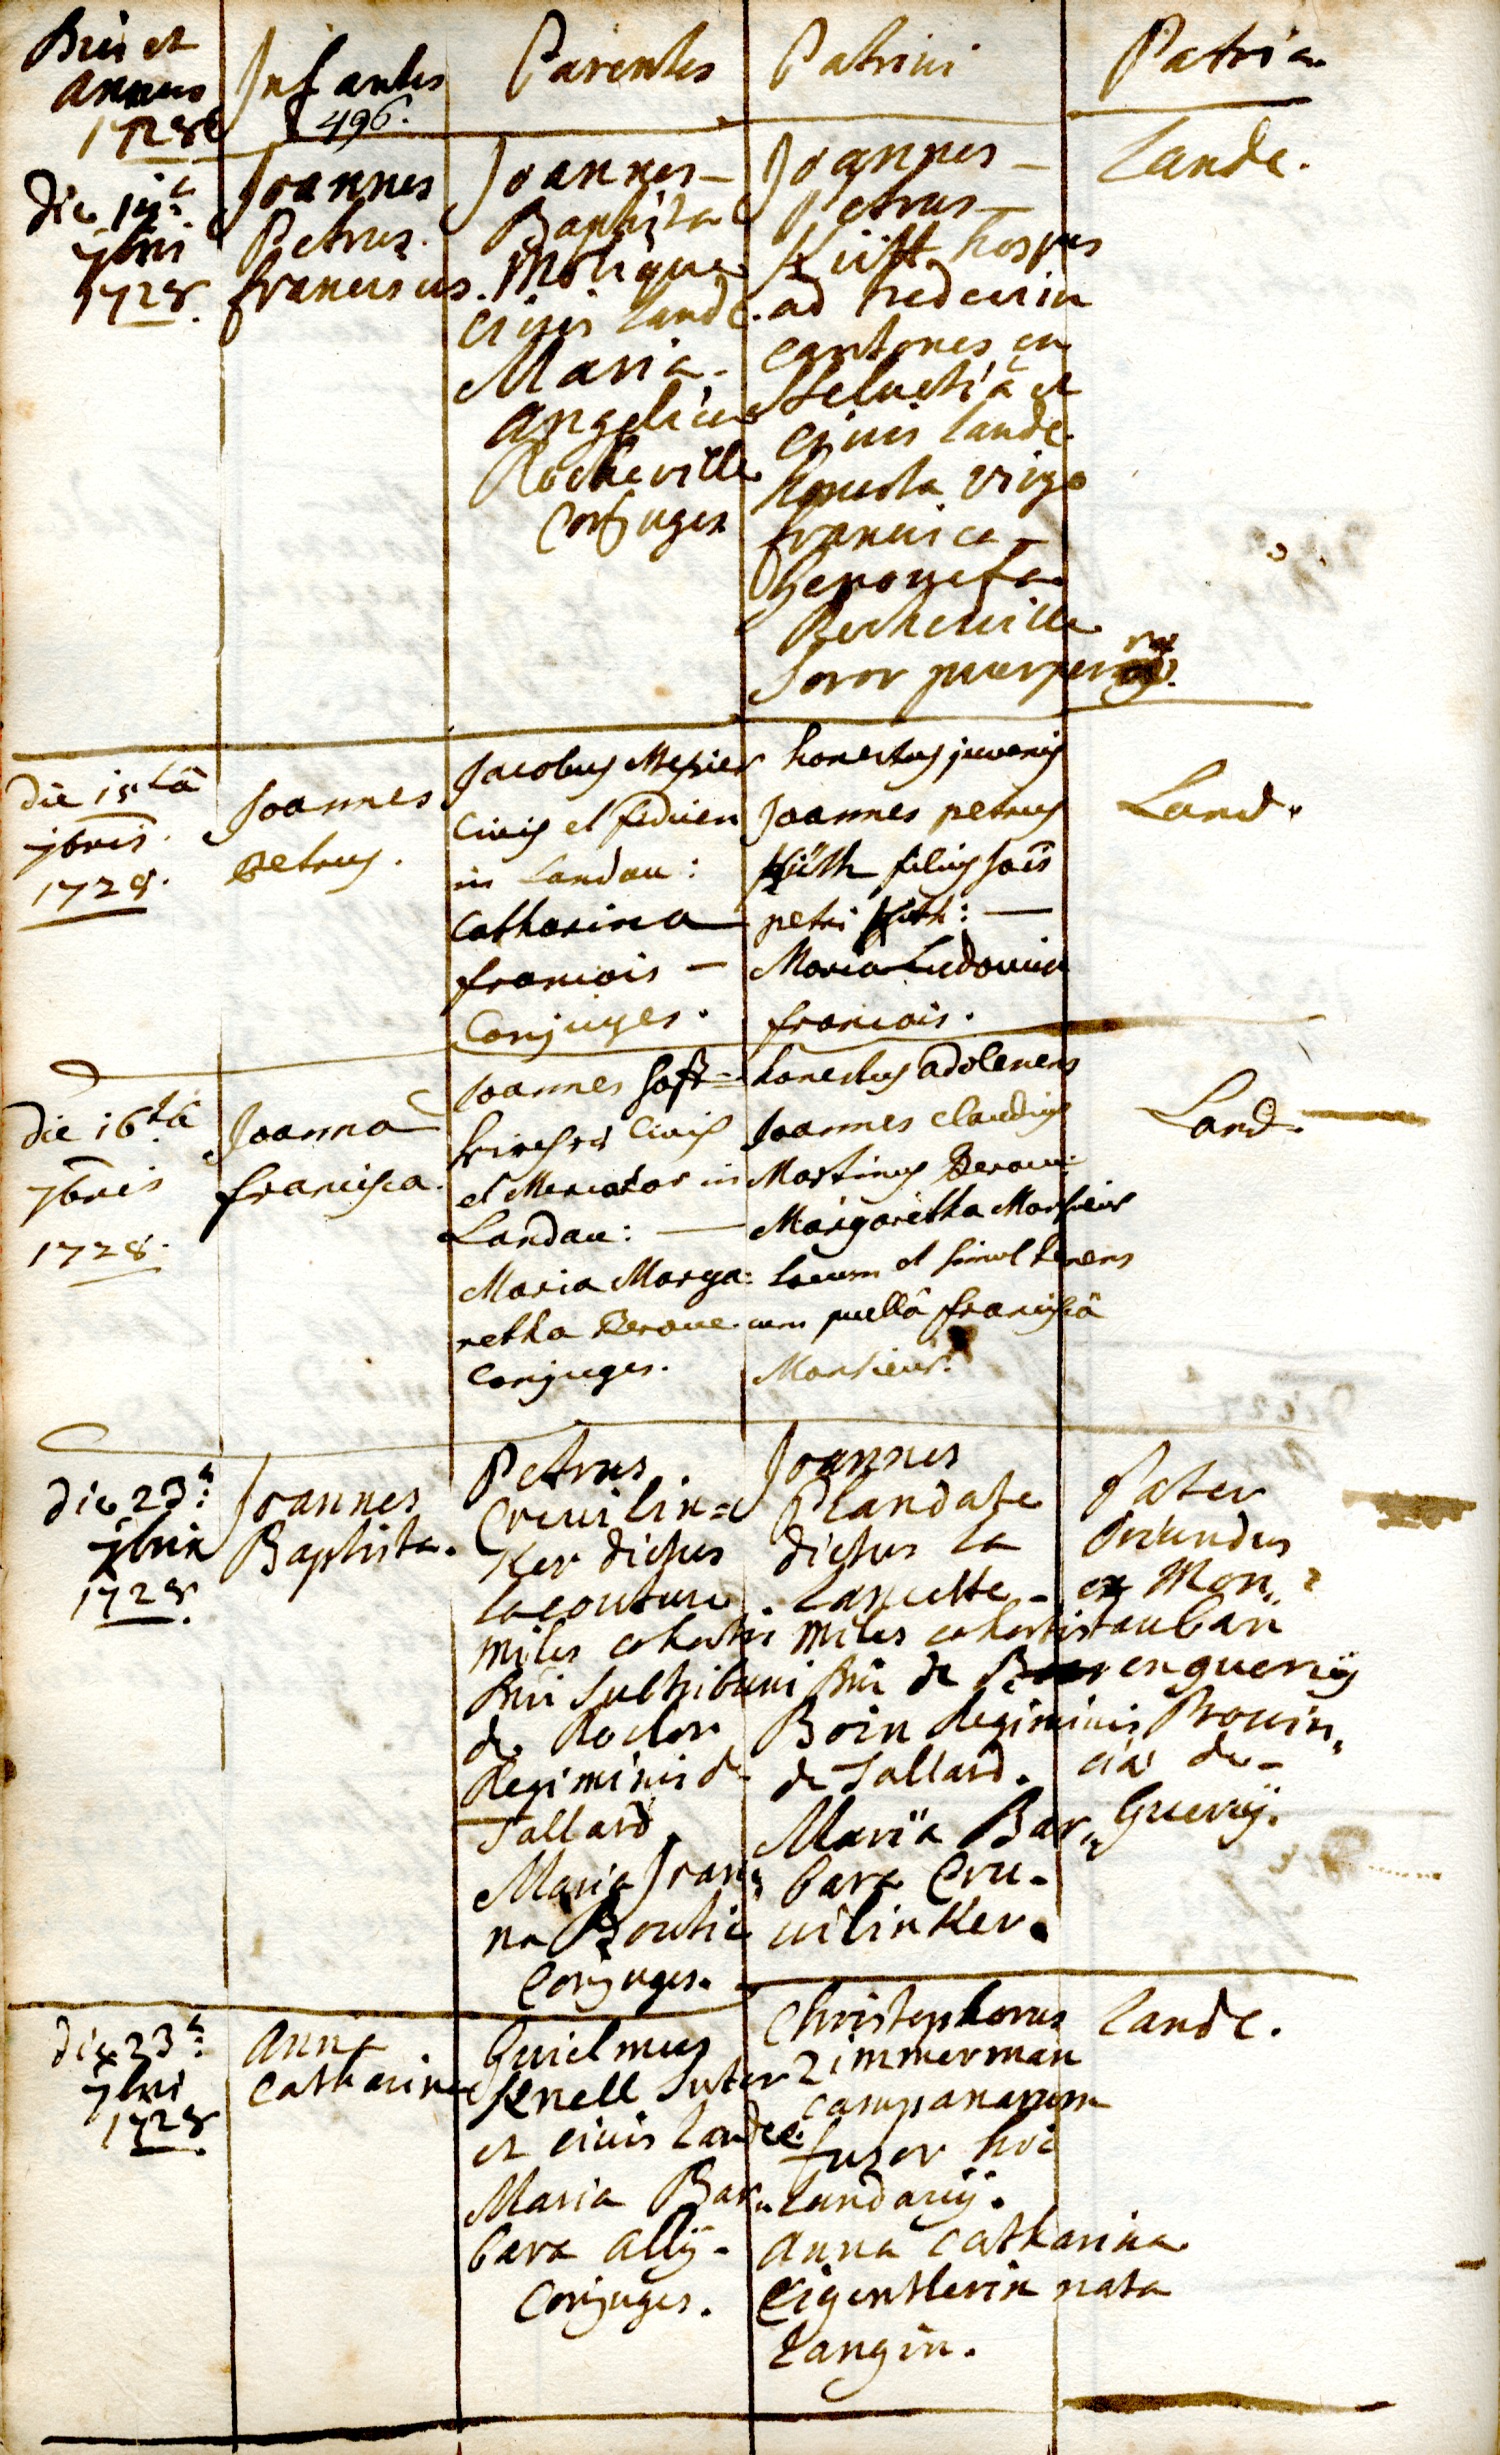 Dies et
annus
1728
Infantes
496.
Parentes
Patrini
Patria
Die 14a
7bris
1728.
Joannes
Petrus.
franciscus.
Joannes-
Baptista
Molique
civis Landa.
Maria-
Angelica
Rocheville
Conjuges
Joannes-
Petrus-
Kütt hospes
ad tredecim
cantones in
Helvetia et
civis Landae.
honesta virgo
francisca-
Genovefa
Rocheville
Soror puerperae.
Landae.
die 15ta
7bris.
1728.
Joannes
Petrus.
Jacobus Mesier
civis et
in Landau:
Catharina
francois -
Conjuges.
honestus juvenis
Joannes petrus
Küth filius Jois
petri Küth: -
Maria Ludovica
francois.
Land.
die 16ta
7bris
1728.
Joanna
francisca.
Joannes hoff=
kirch civis
et Mercator in
Landau: -
Maria Marga:
retha Beraue.
conjuges.
honestus adolescens
Joannes claudius
Martinus Beraue:
Margaretha
locum et simul tenens
cum puellâ franciscâ
Monsieur.
Land.
die 23a:
7bris
1728
Joannes
Baptista.
Petrus
Cruvilin=
Ker dictus
lacouture
miles cohortis
Dni Subtribuni
de
Regiminis de
Tallard
Maria Joan„
na Boutie
Conjuges.
Joannes
Plandate
dictus la
miles cohortis
Dni de
Boin Regiminis
de Tallard.
Maria Bar„
bara Cru-
vilinker.
Pater
oriundus
ex Mon„
tauban
en querij
Provin„
cia de-
Guerij.
die 23a:
7bris
1728.
Anna
Catharina
Guielmus
Knell Sutor
et civis Landae.
Maria Bar„
bara Ally-
Conjuges.
Christophorus
Zimmerman
campanarum
fusor hic
Landavij.
Anna Catharina
Eigentlerin nata
Langin.
Landae.